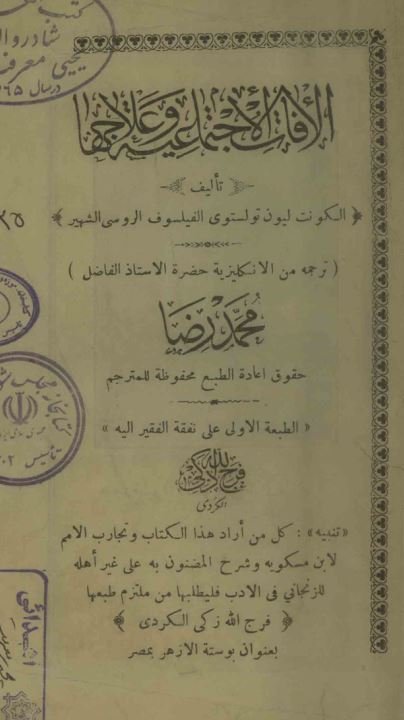 الأفات الأجتماعية وعلاجها
تأليف
﴿ الكونت ليون تولستوى الفيلسوف الروسى الشهير ﴾
( ترجمه من الانكليزية حضرة الاستاذ الفاضل )
محمد رضا
حقوق اعادة الطبع محفوظة للمترجم
« الطبعة الاولى على نفقة الفقير اليه »
فرج الله زكى
الكردى
«تنبيه» : كل من أراد هذا الكتاب وتجارب الامم
لابن مسكويه وشرح المضنون به على غير أهله
للزنجاني فى الادب فليطلبها من ملتزم طبعها
﴿ فرج الله زكى الكردى ﴾
بعنوان بوستة الازهر بمصر
شادروا
يحيى معرفت
در سال ۶۵
۳۵
كتابخانه مجلس ش
تأسيس ۳۰۲
اهدائى